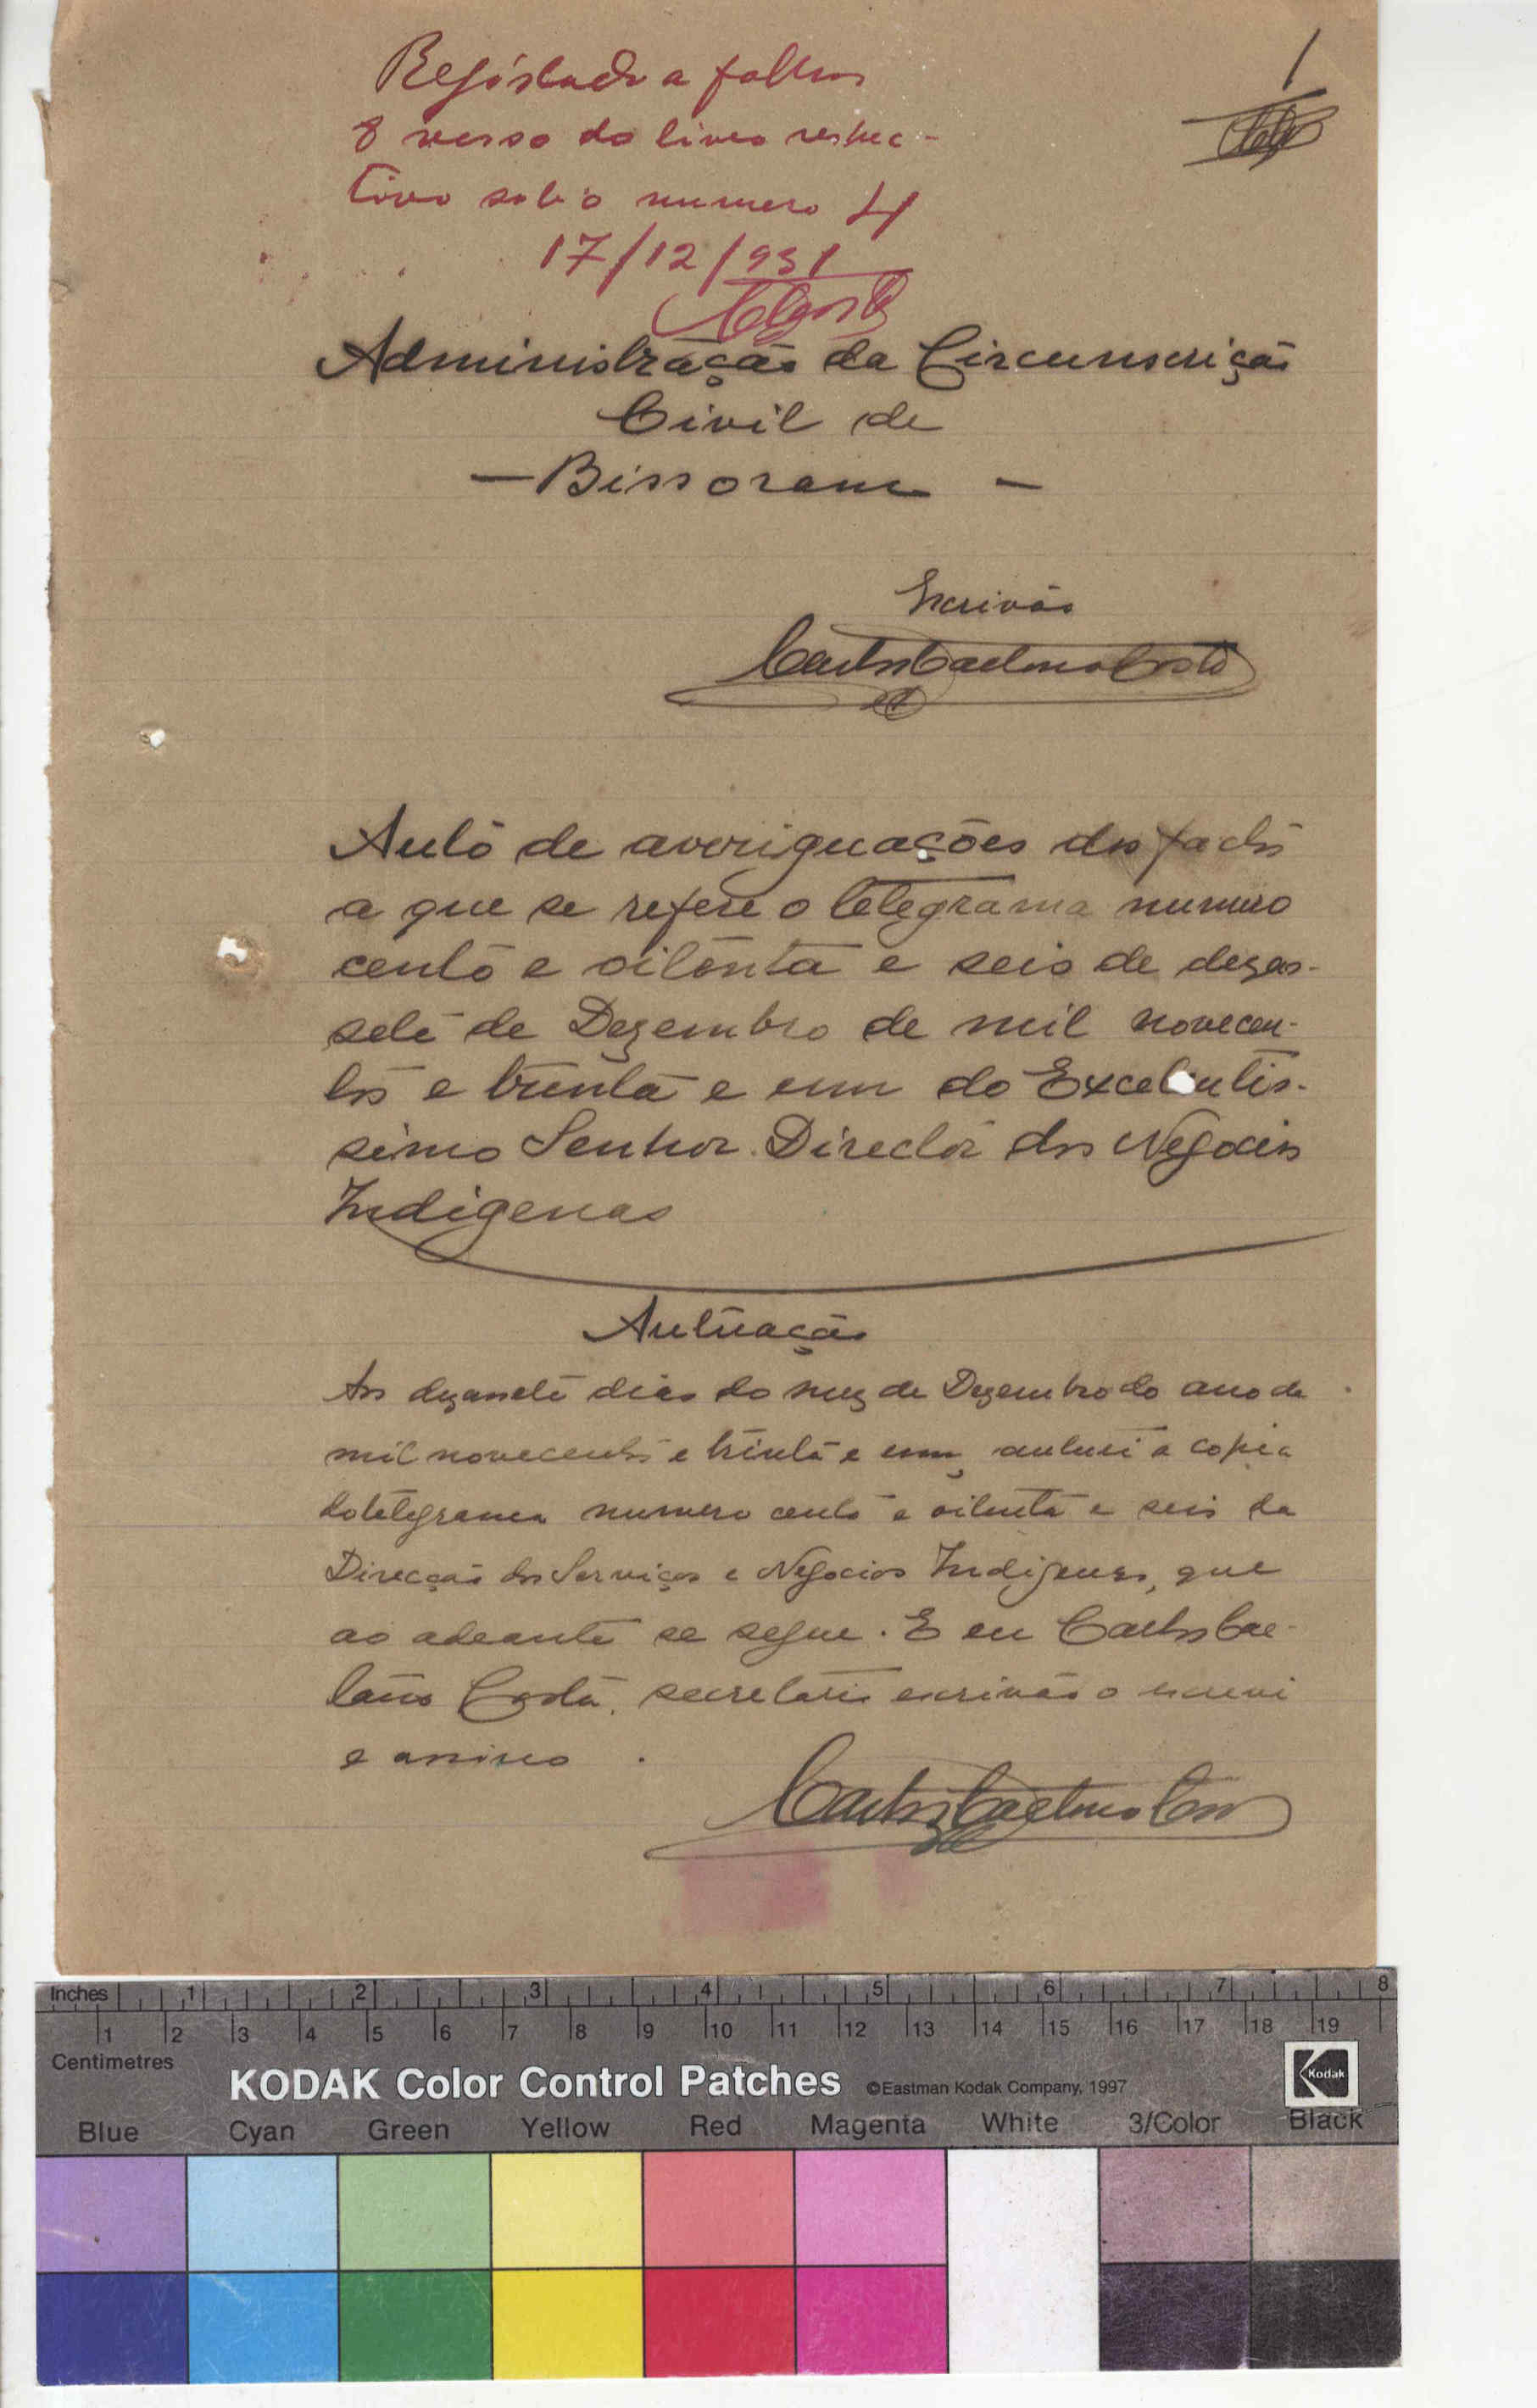 Registado a folhas
8 verso do livro respec-
tivo sob o numero 4
17/12/931
1
Administração da Circunscrição
Civil de
— Bissoram —
Escrivão
Carlos Caetano Costa
Auto de averiguações dos factos
a que se refere o telegrama numero
cento e oitenta e seis de dezas-
sete de Dezembro de mil novecen-
tos e trinta e um do Excelentis-
simo Senhor Director dos Negocios
Indigenas
Autuação
Aos dezassete dias do mez de Dezembro do ano de
mil novecentos e trinta e um, autuei a copia
do telegrama numero cento e oitenta e seis da
Direcção dos Serviços e Negocios Indigenas, que
ao adeante se segue. E eu Carlos Cae-
tano Costa, secretario escrivão o escrevi
e assino.
Carlos Caetano Costa
Inches 1 2 3 4 5 6 7 8
1 2 3 4 5 6 7 8 9 10 11 12 13 14 15 16 17 18 19
Centimetres
KODAK Color Control Patches ©Eastman Kodak Company, 1997 Kodak
Blue Cyan Green Yellow Red Magenta White 3/Color Black